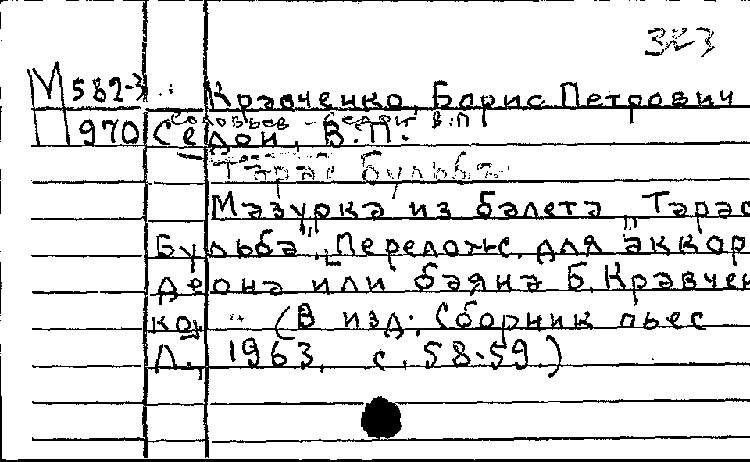 323
М 582-3 Кравченко, Борис Петрович
Соловьев-Седой В.П.
П 970 Седой, В.П.
Тарас Бульба
Мазурка из балета „Тарас
Бульба". Перелож. для аккор
деона или баяна Б. Кравчен
ко. " (В изд: Сборник пьес
Л., 1963, с. 58-59.)